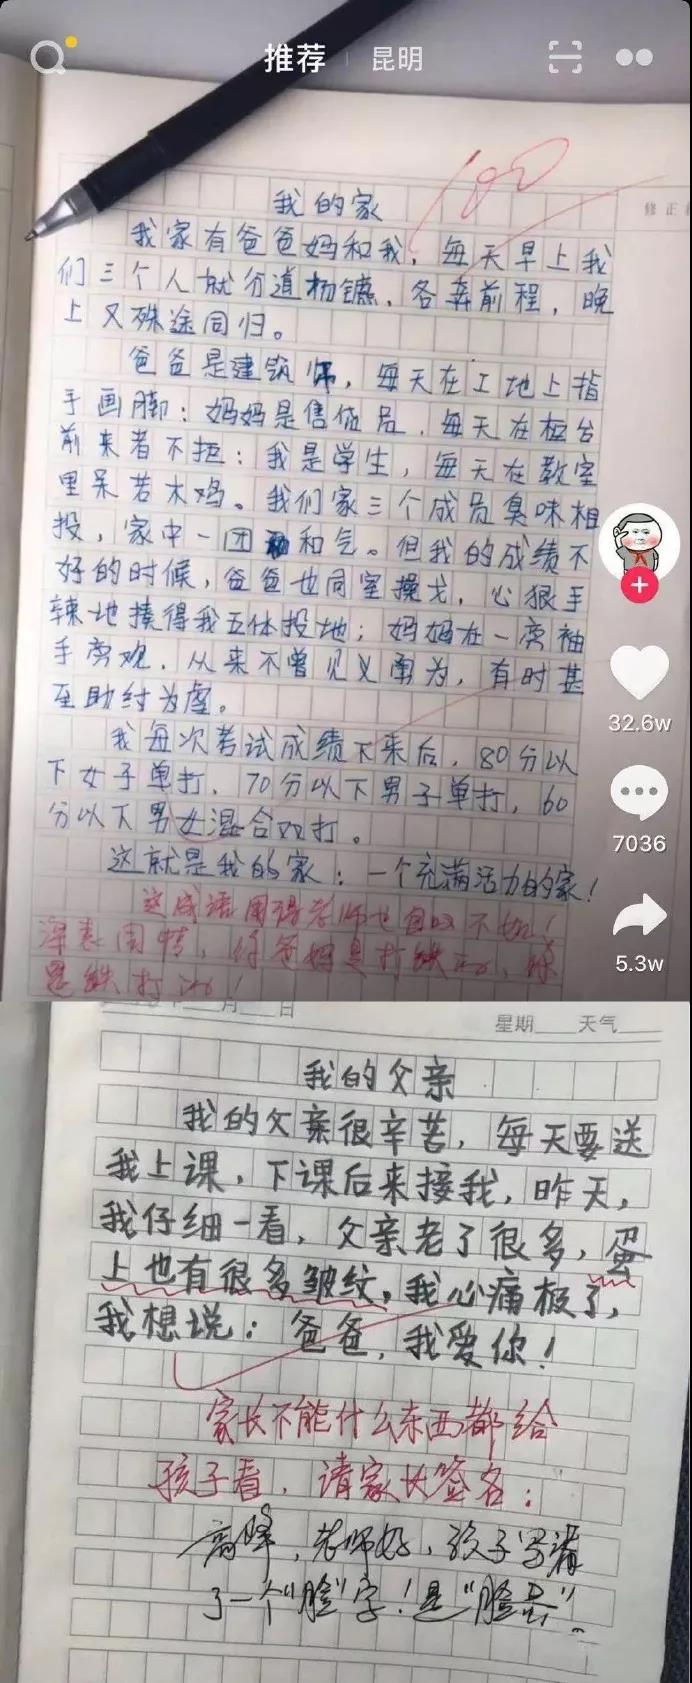 推荐 昆明
100
修正
我的家
我家有爸爸妈和我，每天早上我
们三个人就分道杨镳，各奔前程，晚
上又殊途同归。
爸爸是建筑师，每天在工地上指
手画脚；妈妈是售货员，每天在柜台
前来者不拒；我是学生，每天在教室
里呆若木鸡。我们家三个成员臭味相
投，家中一团和气。但我的成绩不
好的时候，爸爸也同室操戈，心狠手
辣地揍得我五体投地；妈妈在一旁袖
手旁观，从来不曾见义勇为，有时甚
至助纣为虐。
我每次考试成绩下来后，80分以
下女子单打，70分以下男子单打，60
分以下男女混合双打。
这就是我的家：一个充满活力的家！
这成语用得老师也自叹不如！
深表同情，你爸妈是打铁的，你
是铁打的！
32.6w
7036
5.3w
月 日
星期 天气
我的父亲
我的父亲很辛苦，每天要送
我上课，下课后来接我，昨天，
我仔细一看，父亲老了很多，蛋
上也有很多皱纹，我心痛极了，
我想说：爸爸，我爱你！
家长不能什么东西都给
孩子看，请家长签名：
高峰，老师好，孩子写漏
了一个“脸”字！是“脸蛋”。